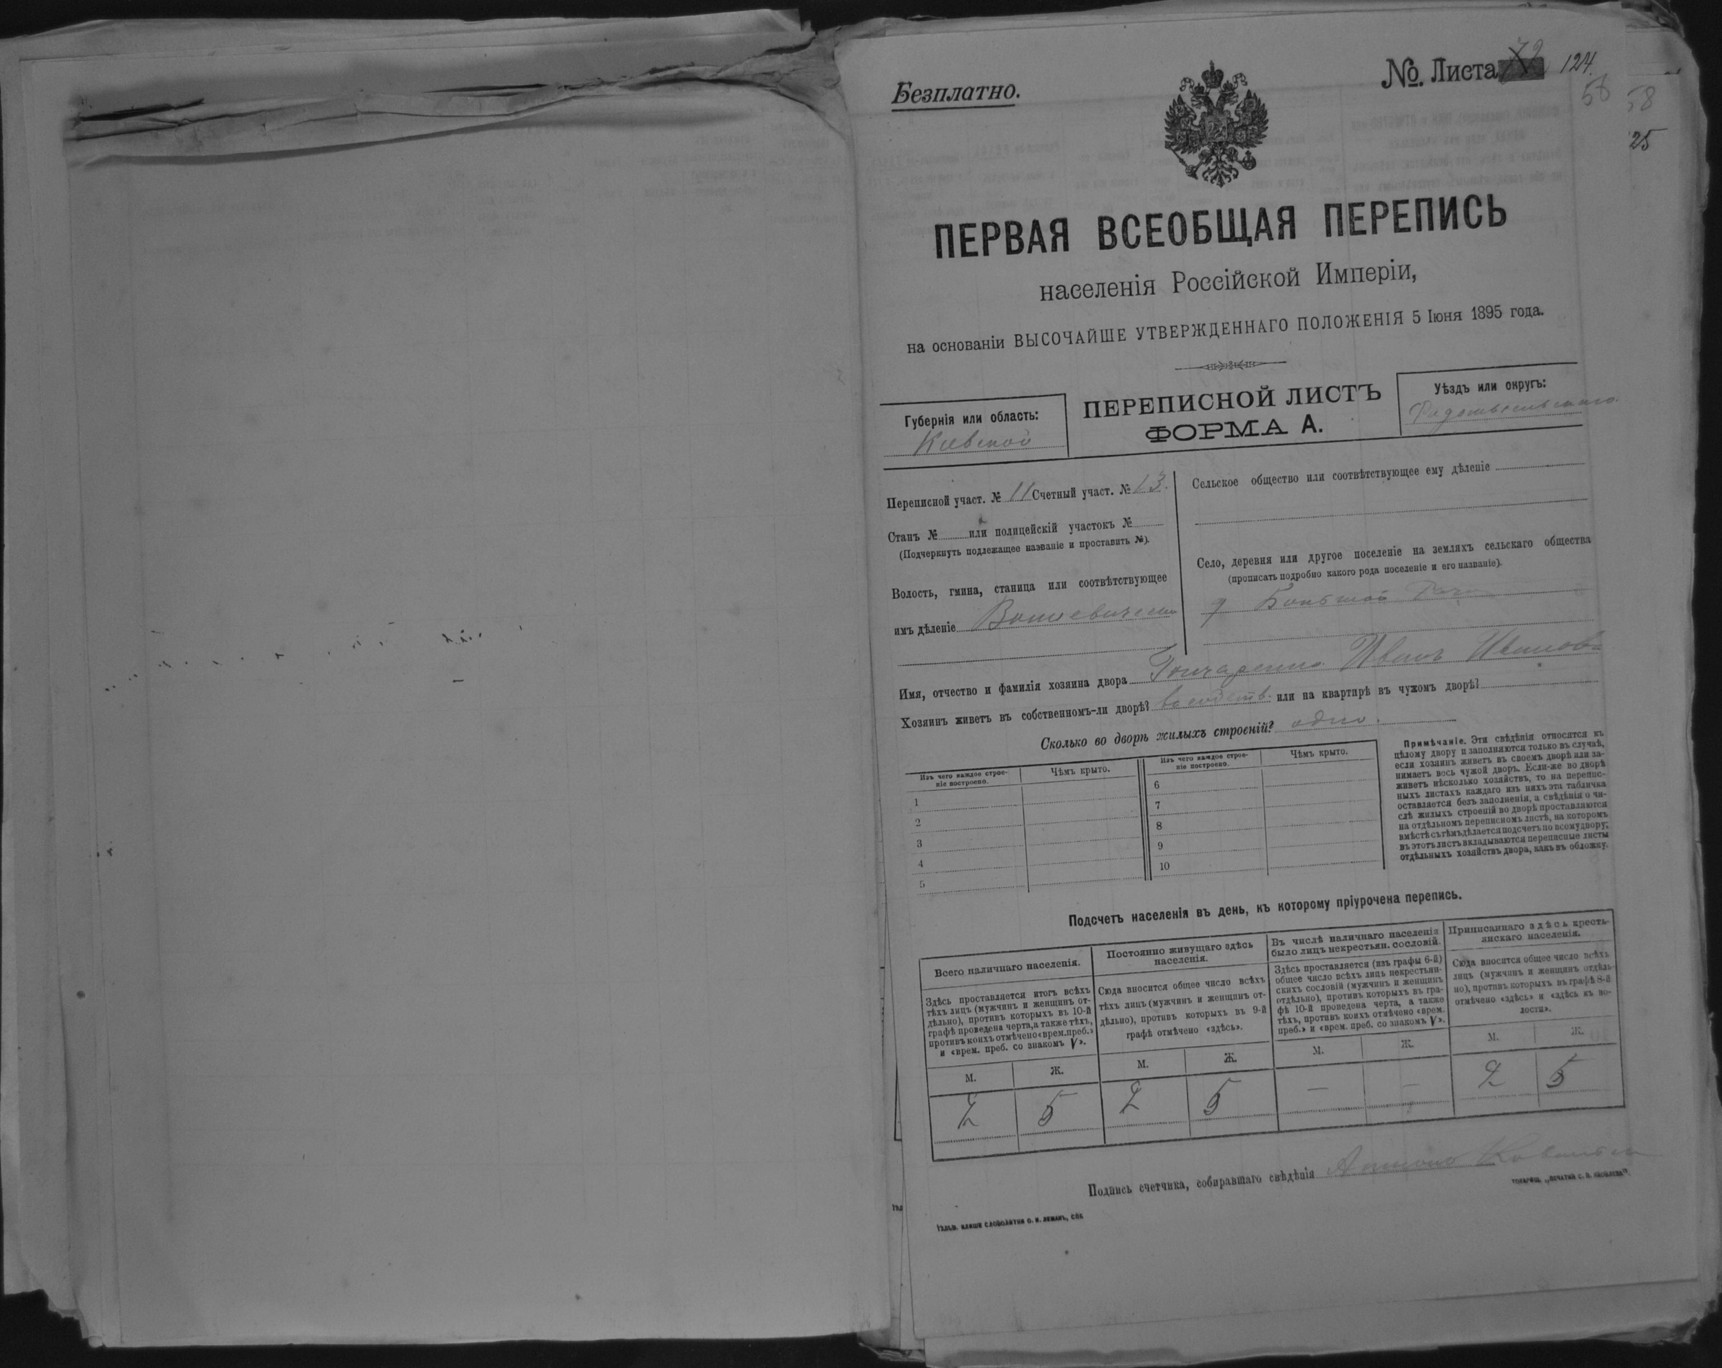 Безплатно.
№ Листа 72 124.
56 58
25
ПЕРВАЯ ВСЕОБЩАЯ ПЕРЕПИСЬ
населенія Россійской Имперіи,
на основаніи ВЫСОЧАЙШЕ УТВЕРЖДЕННАГО ПОЛОЖЕНІЯ 5 Іюня 1895 года.
Губернія или область:
Кіевской
ПЕРЕПИСНОЙ ЛИСТЪ
ФОРМА А.
Уѣздъ или округъ:
Радомысльскаго
Переписной участ. № 11 Счетный участ. № 13.
Станъ № или полицейскій участокъ №
(Подчеркнуть подлежащее названіе и проставить №).
Волость, гмина, станица или соотвѣтствующее
имъ дѣленіе
Сельское общество или соотвѣтствующее ему дѣленіе
Село, деревня или другое поселеніе на земляхъ сельскаго общества
(прописать подробно какого рода поселеніе и его названіе).
Имя, отчество и фамилія хозяина двора Гончаренко Иванъ Иванов
Хозяинъ живетъ въ собственномъ-ли дворѣ? или на квартирѣ въ чужомъ дворѣ?
Сколько во дворѣ жилыхъ строеній? одно.
Изъ чего каждое строе-
ніе построено.
Чѣмъ крыто.
1
2
3
4
5
Изъ чего каждое строе-
ніе построено.
Чѣмъ крыто.
6
7
8
9
10
Примѣчаніе. Эти свѣдѣнія относятся къ
цѣлому двору и заполняются только въ случаѣ,
если хозяинъ живетъ въ своемъ дворѣ или за-
нимаетъ весь чужой дворъ. Если-же во дворѣ
живетъ нѣсколько хозяйствъ, то на перепис-
ныхъ листахъ каждаго изъ нихъ эта табличка
оставляется безъ заполненія, а свѣдѣнія о чи-
слѣ жилыхъ строеній во дворѣ проставляются
на отдѣльномъ переписномъ листѣ, на которомъ
вмѣстѣ съ тѣмъ дѣлается подсчетъ по всему двору;
въ этотъ листъ вкладываются переписные листы
отдѣльныхъ хозяйствъ двора, какъ въ обложку.
Подсчетъ населенія въ день, къ которому пріурочена перепись.
Всего наличнаго населенія.
Здѣсь проставляется итогъ всѣхъ
тѣхъ лицъ (мужчинъ и женщинъ от-
дѣльно), противъ которыхъ въ 10-й
графѣ проведена черта, а также тѣхъ,
противъ коихъ отмѣчено «врем. преб.»
и «врем. преб. со знакомъ V».
М. Ж.
2 5
Постоянно живущаго здѣсь
населенія.
Сюда вносится общее число всѣхъ
тѣхъ лицъ (мужчинъ и женщинъ от-
дѣльно), противъ которыхъ въ 9-й
графѣ отмѣчено «здѣсь».
М. Ж.
2 5
Въ числѣ наличнаго населенія
было лицъ некрестьян. сословій.
Здѣсь проставляется (изъ графы 6-й)
общее число всѣхъ лицъ некрестьян-
скихъ сословій (мужчинъ и женщинъ
отдѣльно), противъ которыхъ въ гра-
фѣ 10-й проведена черта, а также
тѣхъ, противъ коихъ отмѣчено «врем.
преб.» и «врем. преб. со знакомъ V».
М. Ж.
— —
Приписаннаго здѣсь кресть-
янскаго населенія.
Сюда вносится общее число всѣхъ
лицъ (мужчинъ и женщинъ отдѣль-
но), противъ которыхъ въ графѣ 8-й
отмѣчено «здѣсь» и «здѣсь въ во-
лости».
М. Ж.
2 5
Подпись счетчика, собиравшаго свѣдѣнія